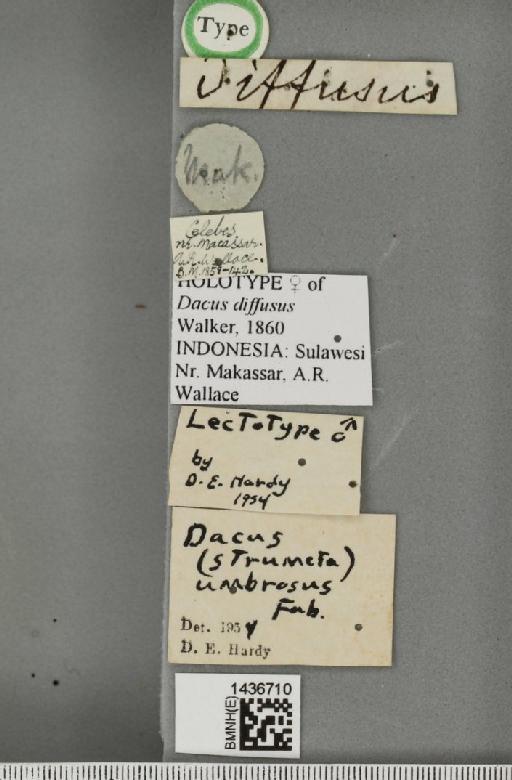 Type
diffusus
Mak.
Celebes.
nr. Macassar.
A.R. Wallace.
B.M. 1858-142.
HOLOTYPE ♀ of
Dacus diffusus
Walker, 1860
INDONESIA: Sulawesi
Nr. Makassar, A.R.
Wallace
LecToType ♂
by
D. E. Hardy
1954
Dacus
(STrumeta)
umbrosus
Fab.
Det. 1954
D. E. Hardy
1436710
BMNH(E)